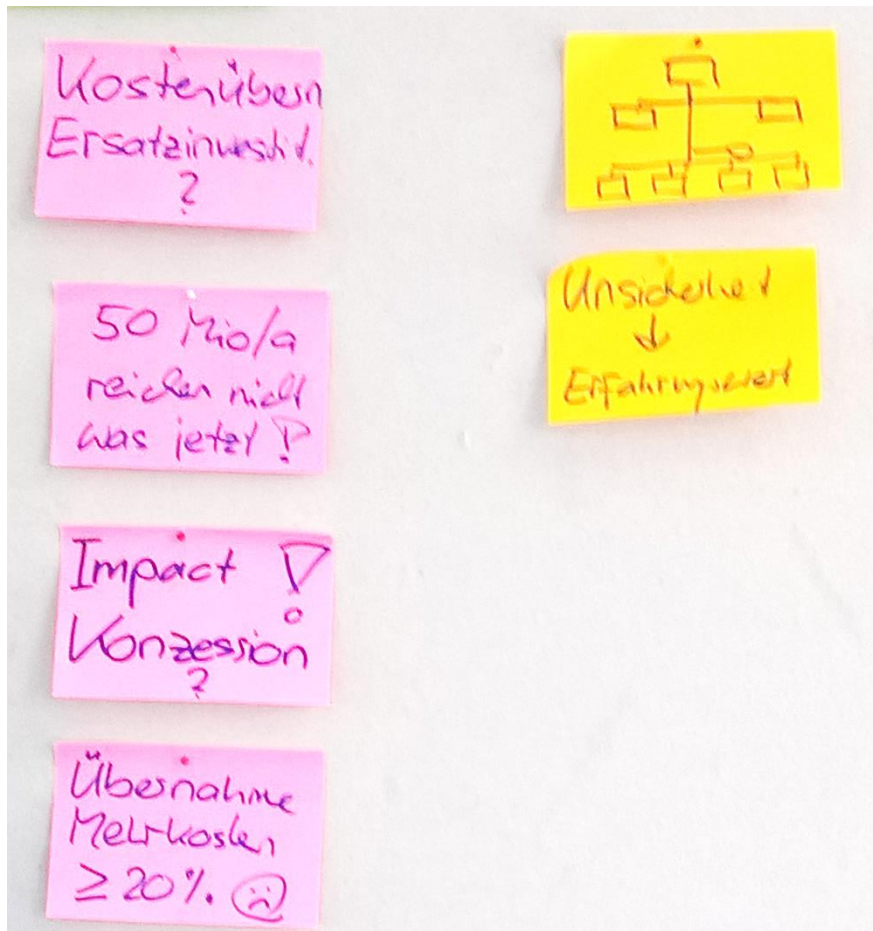 Kostenübern
Ersatzinvestit.
?
50 Mio/a
reichen nicht
was jetzt !?
Impact !
Konzession
?
Übernahme
Mehrkosten
≥ 20%. ☹
Unsicherheit
↓
Erfahrungswert